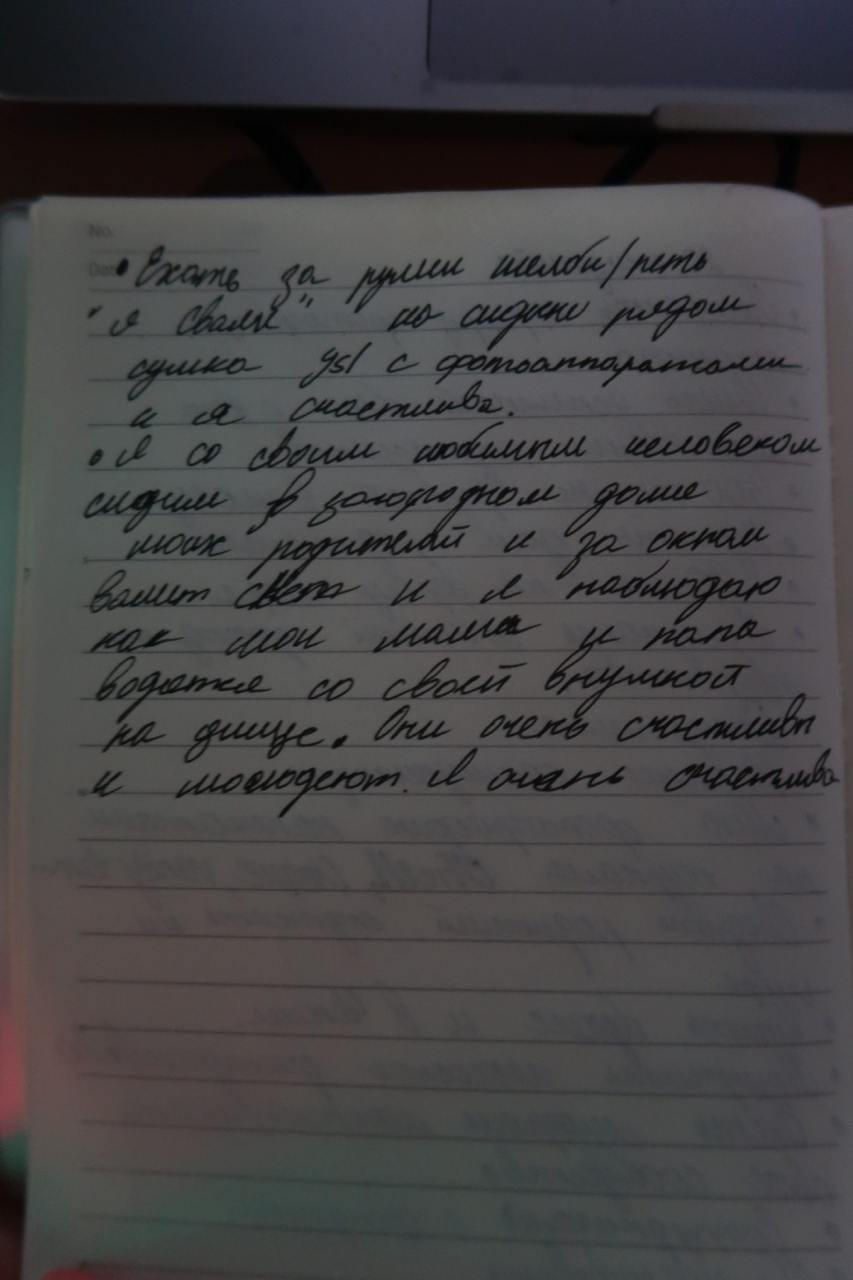 No.
Dat
• Ехать за рулем шелби/петь
"я свали" на сидение рядом
сумка ysl с фотоаппаратами
и я счастлива.
• Я со своим любимым человеком
сидим в загородном доме
моих родителей и за окном
валит снег и я наблюдаю
как мои мама и папа
водятся со своей внучкой
на улице. Они очень счастливы
и молодеют. Я очень счастлива